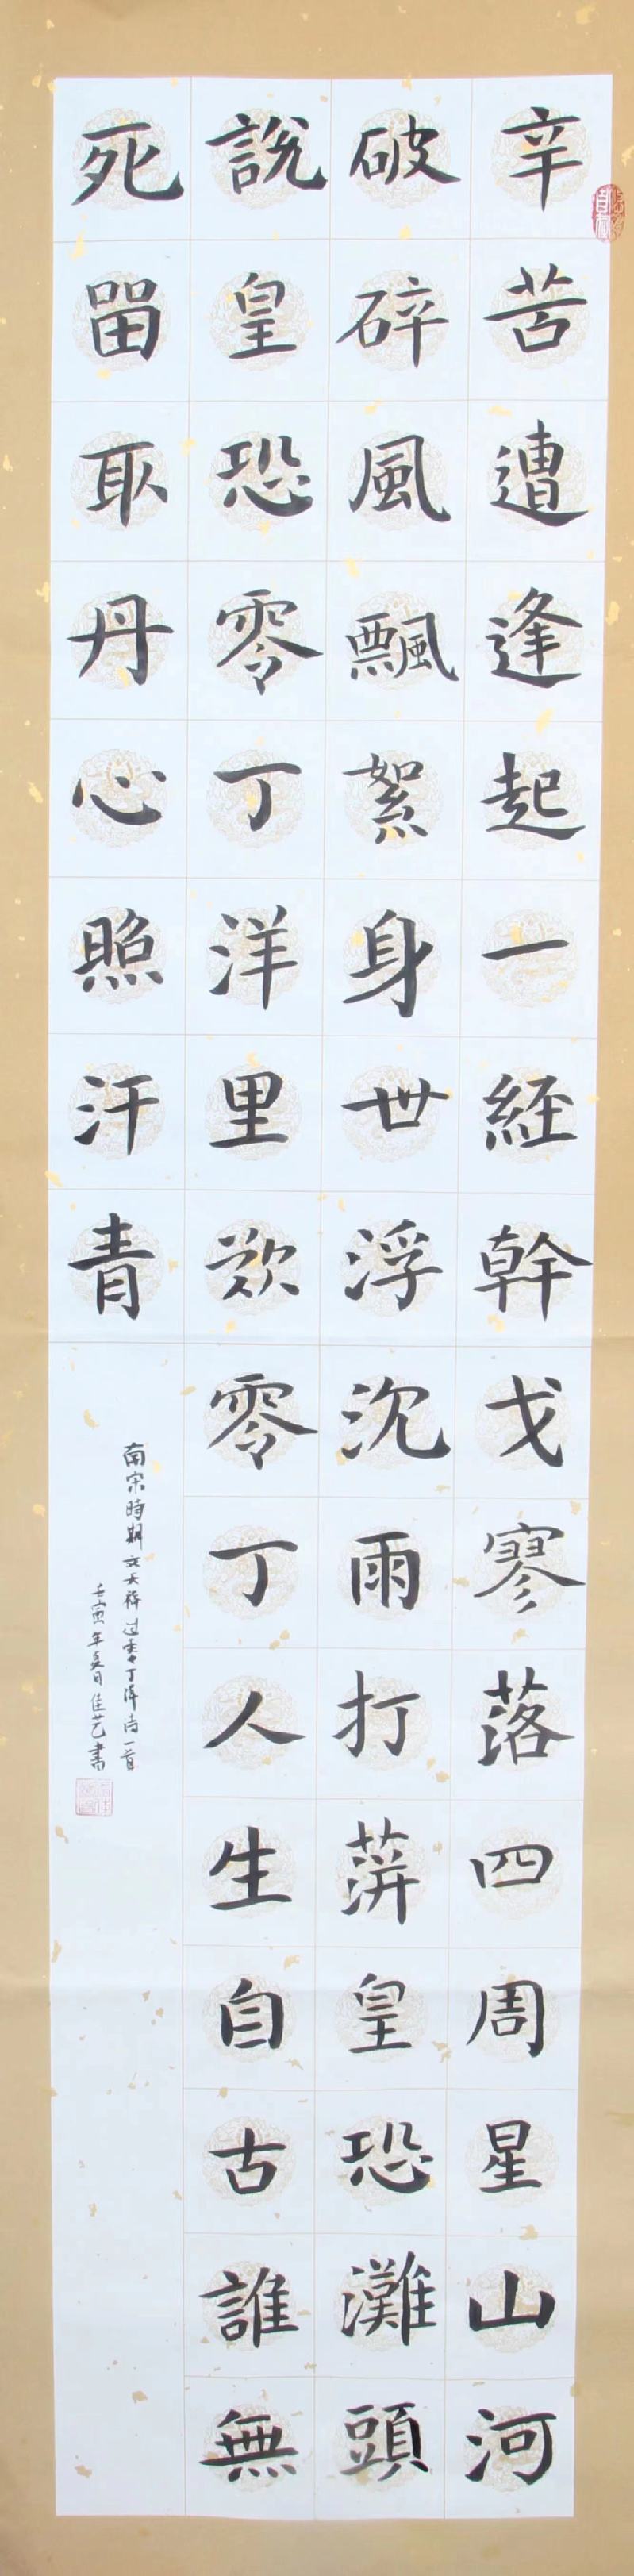 辛苦遭逢起一經幹戈寥落四周星山河
破碎風飄絮身世浮沉雨打萍皇恐灘頭
說皇恐零丁洋里歎零丁人生自古誰無
死留取丹心照汗青
南宋時期文天祥過零丁洋詩一首
壬寅年夏月佳艺書